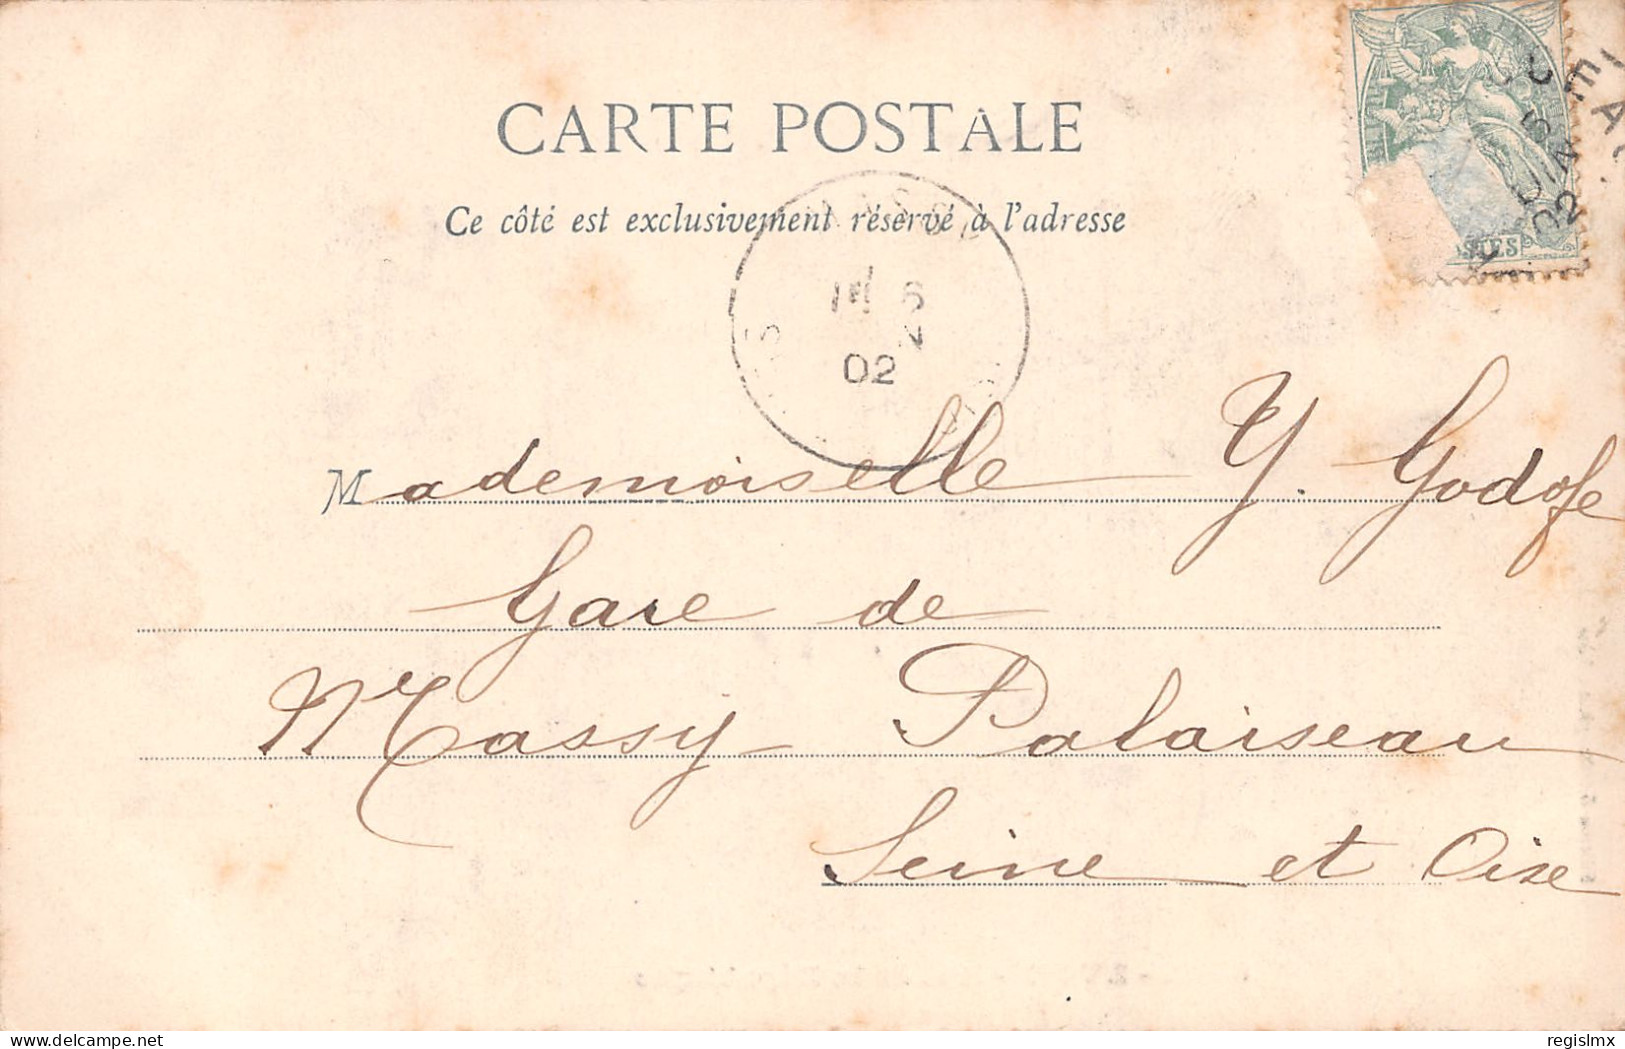 CARTE POSTALE
Ce côté est exclusivement réservé à l'adresse
MASSY
1E 6
02
5
02
STES
Mademoiselle Y. Godofe
Gare de
Massy-Palaiseau
Seine et Oise
delcampe.net
regislmx